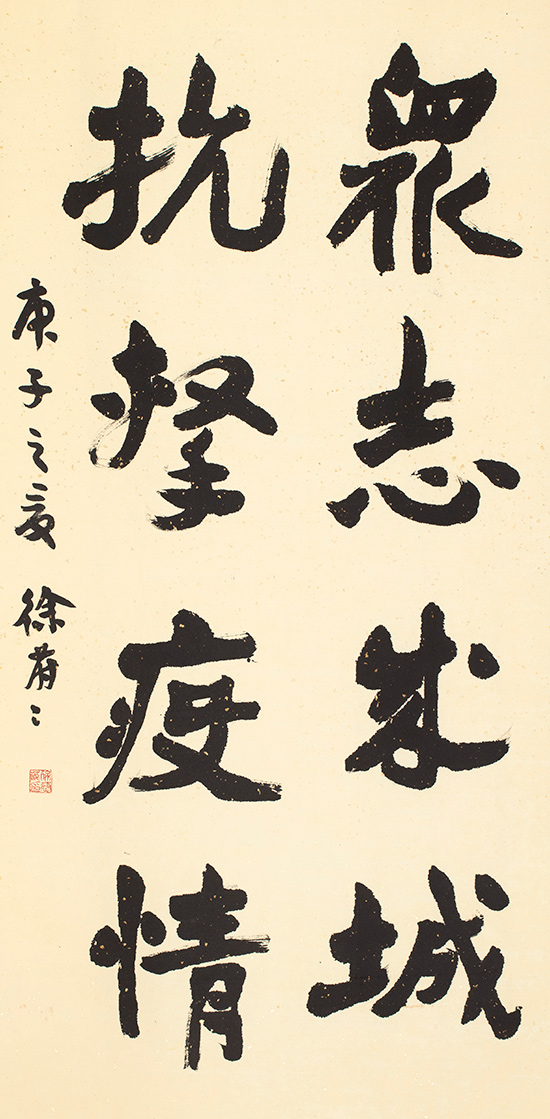 衆志成城
抗擊疫情
庚子之夏 徐